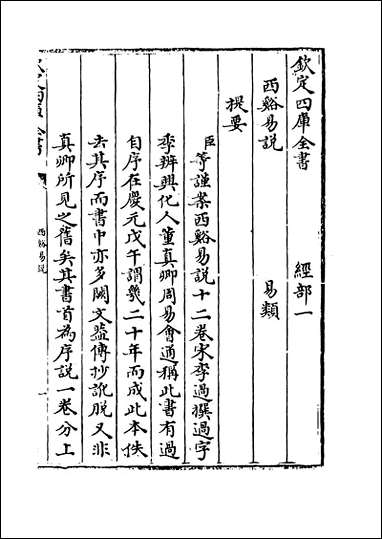 欽定四庫全書　　　經部一
西谿易說　　　　　易類
提要
臣等謹案西谿易說十二卷宋李過撰過字
季辨興化人董真卿周易會通稱此書有過
自序在慶元戊午謂幾二十年而成此本佚
去其序而書中亦多闕文葢傳抄訛脱又非
真卿所見之舊矣其書首為序說一卷分上
西谿易說